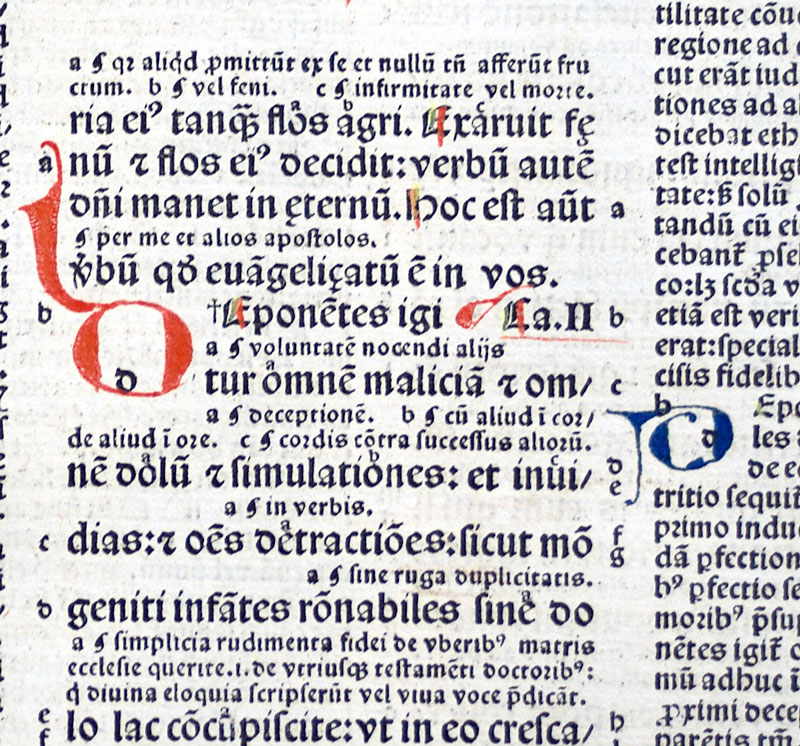 a ¶ qꝛ aliqd ꝓmittūt ex se et nullū tñ afferūt fru
ctum. b ¶ vel feni. c ¶ infirmitate vel morte.
ria eiꝰ tanq̃ȝ flõs agri. Exaruit fę
a nū ⁊ flos eiꝰ decidit: verbū autē
dñi manet in ęternū. Hoc est aūt a
¶ per me et alios apostolos.
v̄bū qđ euāgeliçatū ē in vos.
b †Eponētes igi Ca. II b
a ¶ voluntatē nocendi alijs
D tur omnē maliciā ⁊ om/ c
a ¶ deceptionē. b ¶ cū aliud ī cor/
de aliud ī ore. c ¶ cordis cōtra successus alioꝛū.
nē dolū ⁊ simulationes: et inui/ d
e
a ¶ in verbis.
c dias: ⁊ oēs detractiões: sicut mō f
g
a ¶ sine ruga duplicitatis.
d geniti infātes rōnabiles sine do
a ¶ simplicia rudimenta fidei de vberibꝰ matris
ecclesie querite .i. de vtriusqȝ testamēti doctoribꝰ:
q̇ diuina eloquia scripserūt vel viua voce p̄dicāt.
e lo lac cōcupiscite: vt in eo cresca/ h
f
tilitate cōu
regione ad
cut erāt iud
tiones ad a
dicebat eth
test intellig
tate: s̄ solū
tandū cū ei
cebant̄ pse
coꝛlȝ scđa v
etiā est veri
erat: special
cisis fidelib
b Epo
d les
de ec
tritio sequit̄
primo indu
dā ꝑfection
hꝰ ꝑfectio se
moribꝰ p̄su
nētes igit̄
mū adhuc ī
ꝓximi dece
parētis tm̄